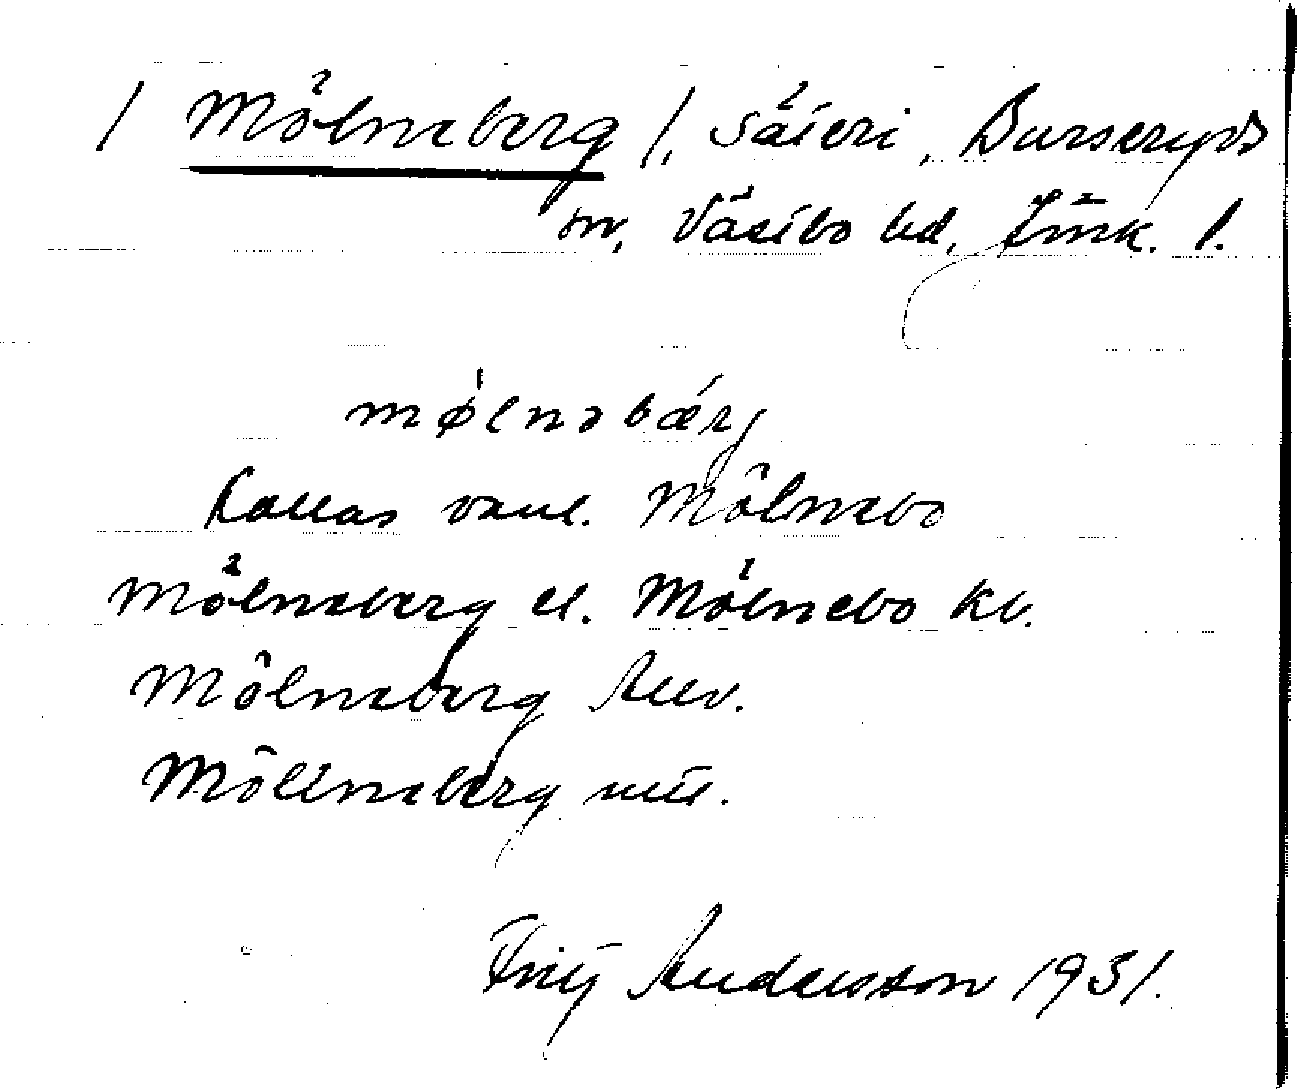 / Mölneberg /, säteri, Burseryds
sn, Västbo hd, Jönk. l.
mølnəbærj
Kallas vanl. Mölnebo
Mölneberg el. Mölnebo kb.
Mölneberg
Möllneberg
Andersson 1931.